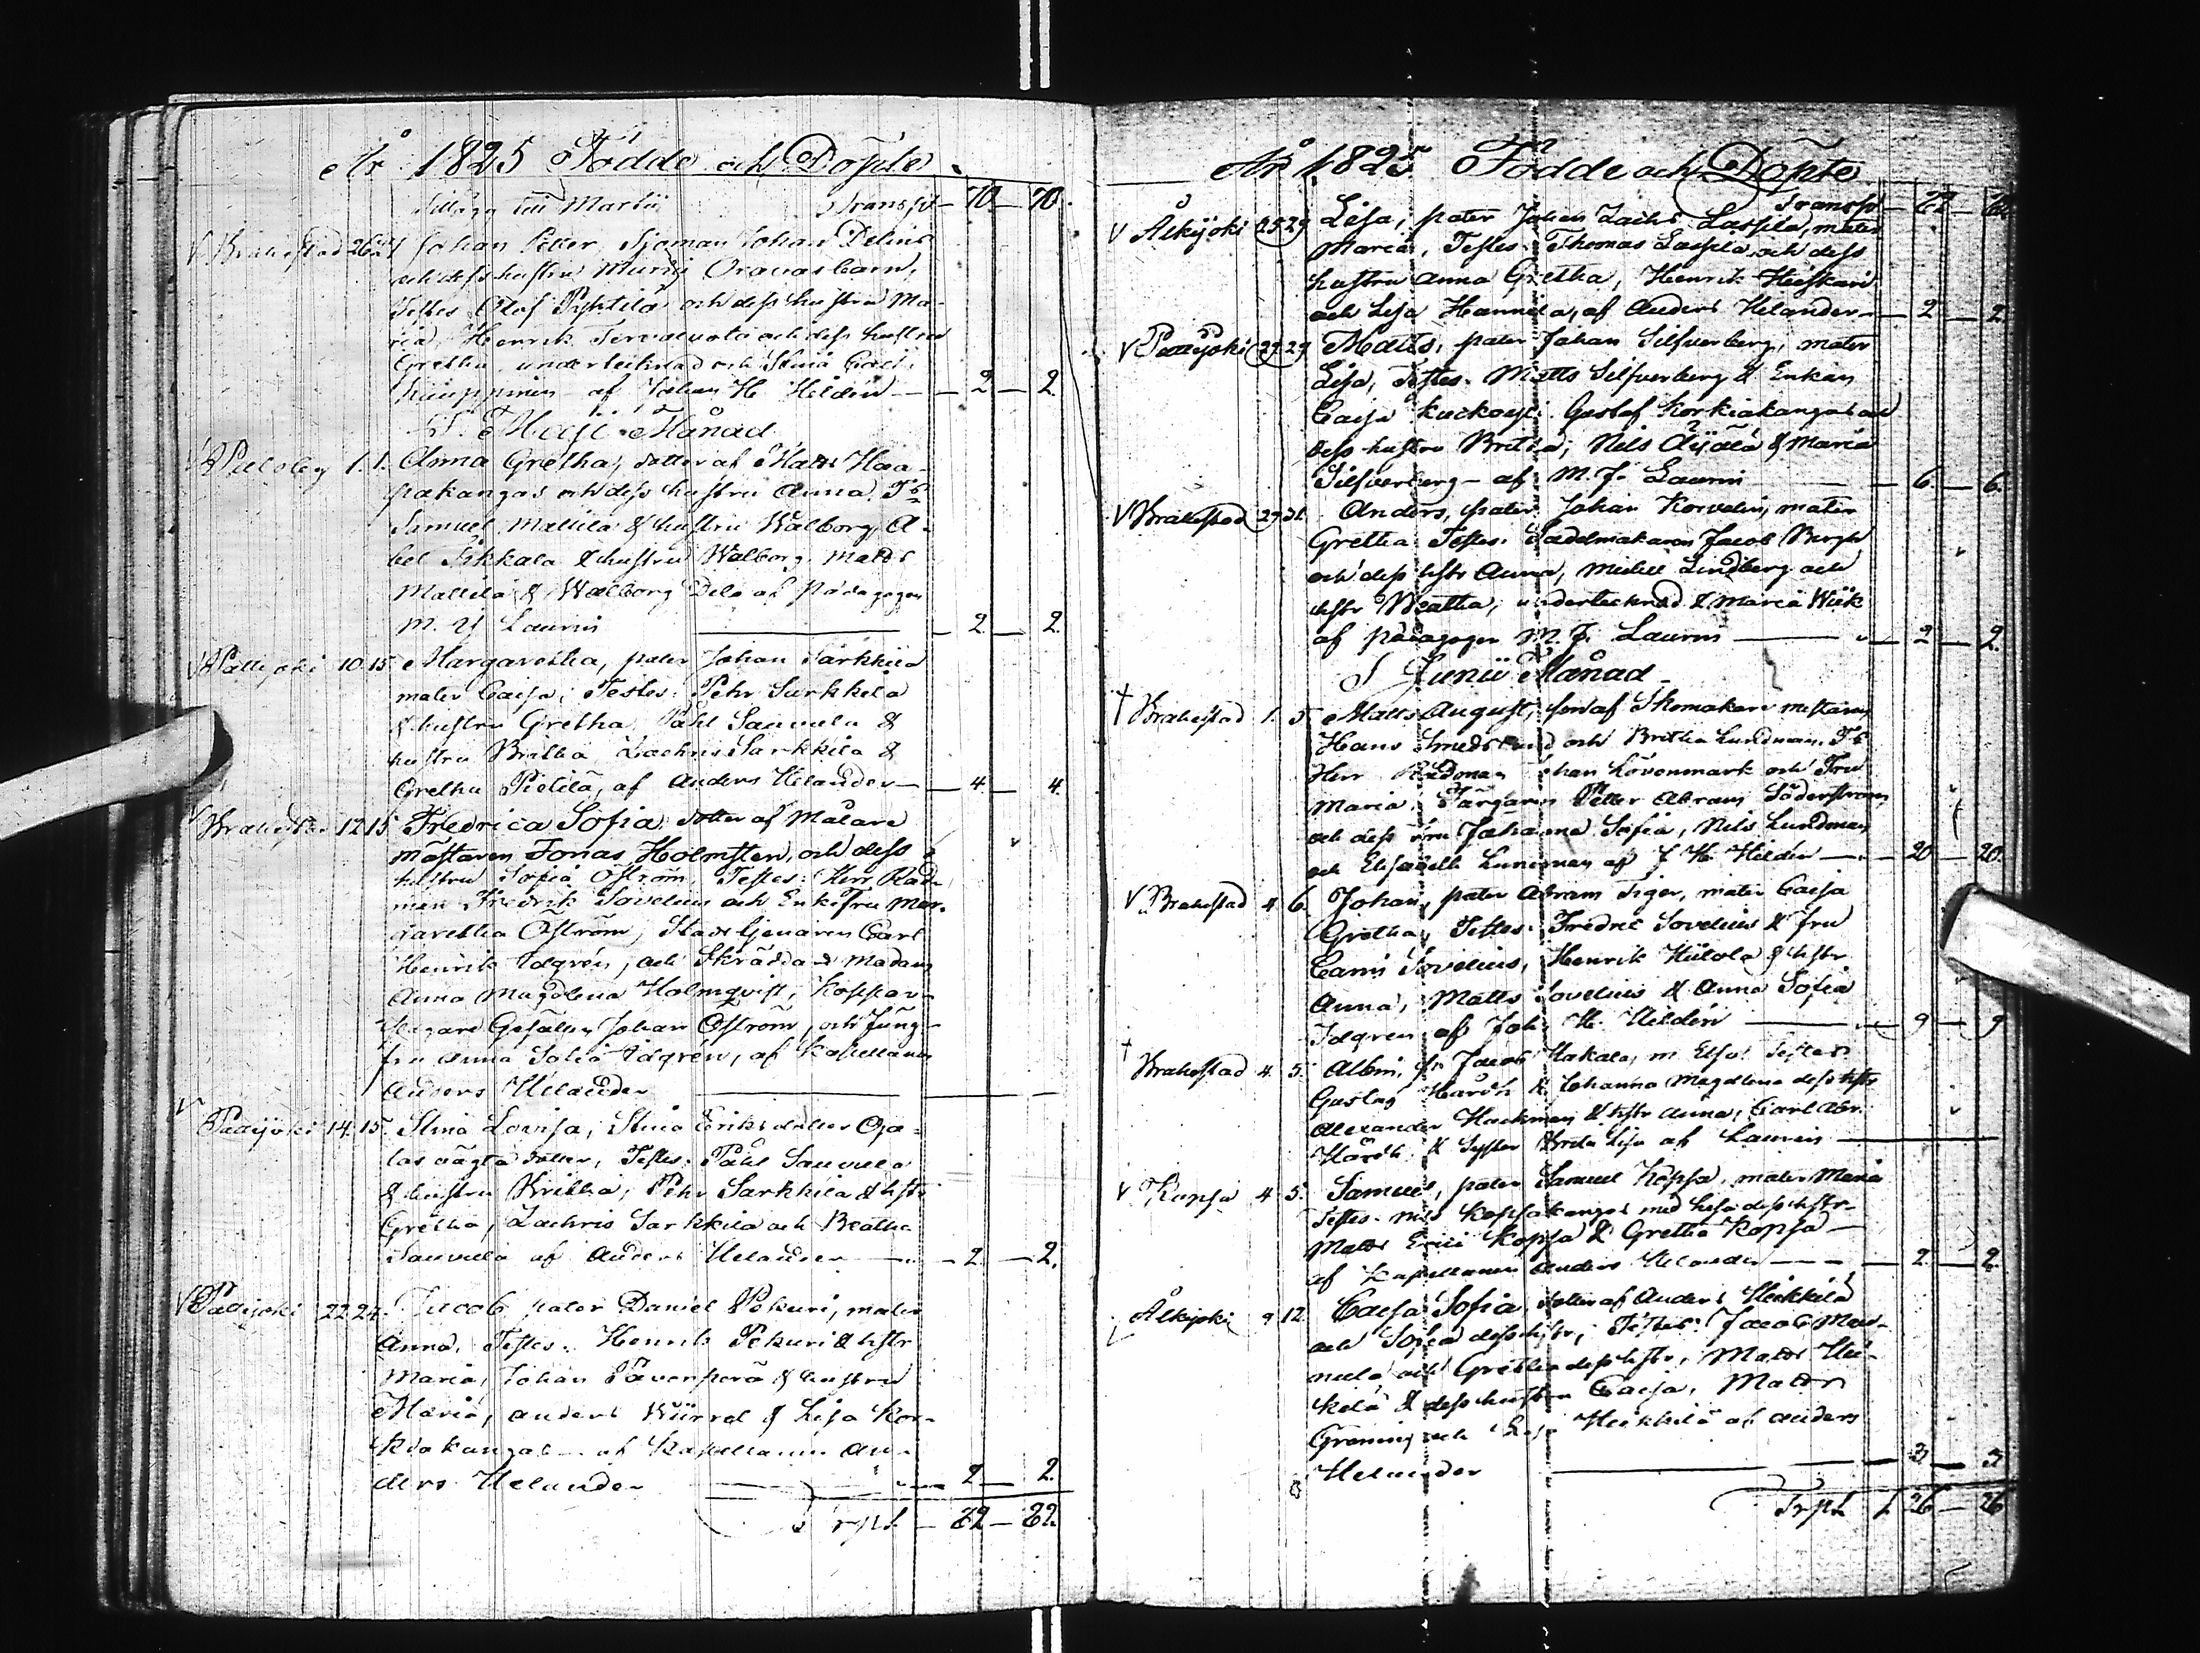 År 1825 Födde och Döpte
Tillägg till Martii Transpt 70 70
Brahestad 26 Johan Petter, Sjöman Johan Delins
och dess hustru Oravas barn,
Testes Olof och dess hustru Ma-
ria, Henrik och dess hustru
Gretha, undertecknad och Stina
af Johan H Heldén 2 2
I Maji Månad
1. 1. Anna Gretha, dotter af Matts Haa-
pakangas och dess hustru Anna, Ts
Samuel Mattila & hustru Walborg, A-
bel Sikkala & hustru Walborg, Matts
Mattila & Walborg af Pædagogen
M. J Laurin 2 2.
Pattijoki 10 15 Margaretha, pater Johan Särkkilä
mater Caisa, Testes: Pehr Särkkilä
& hustru Gretha, Påhl Sauvula &
hustru Britha, Zachris Särkkilä &
Gretha Pietilä, af Anders Helander 4 4.
Brahestad 12 15 Fredrica Sofia, dotter af Målare
mästaren Jonas Holmsten, och dess
hustru Sofia Öström, Testes: Herr Råd-
man Fredrik Sovelius och Enkefru Mar-
garetha Öström, Carl
Henrik Idgrén, och Skräddar Madam
Anna Magdlena Holmqvist, Koppar-
slagare Gesällen Johan Öström, och Jung-
fru Anna Sofia Idgrén, af Kapellanen
Anders Helander
Pattijoki 14. 15. Stina Lovisa, Stina Eriksdotter Oja-
las oägta dotter, Testes: Påhl Sauvula
& hustru Britha, Pehr Särkkilä & hstr
Gretha, Zachris Särkkilä och Beatha
Sauvula af Anders Helander 2. 2.
Pattijoki 22 24. Jacob pater Daniel Pekuri, mater
Anna, Testes: Henrik Pekuri & hstr
Maria, Johan Pävenperä & hustru
Maria, Anders & Lisa Kor-
kiakangas af Kapellanen An-
ders Helander 2 2.
Trpt. 82 82.
År 1825 Födde och Döpte
Transpt 82
Ålkijoki 25 29 Lisa, pater Johan Zachs Laspla, mater
Maria, Testes Thomas Laspla och dess
hustru Anna Gretha, Henrik Heiskari
och Lisa Hannila, af Anders Helander 2 2.
Pattijoki 29 29 Matts, pater Johan Silfverberg, mater
Lisa, Testes: Matts Silfverberg & Enkan
Caisa Gustaf Korkiakangas och
dess hustru Britha, Nils & Maria
Silfverberg - af M. J. Laurin 6. 6.
Brahestad 29 31. Anders, pater Johan Korvelin, mater
Gretha Testes. Sadelmakaren Jacob Bergh
och dess hstr Anna, Michel Lindberg och
hstr Beatha, undertecknad & Maria Wiik
af pædagogen M. J. Laurin 2 2.
I Junii Månad
† Brahestad 1. 5. Matts August, son af Skomakare mästaren
Hans och Britha Lundman. Ts
Herr Rådman Johan Lövenmark och Fru
Maria, Färgaren Petter Abram Söderström
och dess fru Johanna Sofia, Nils Lundman
och Elisabeth Lundman af J. H. Heldén 20 20.
Brahestad 4 6. Johan, pater Abram Tiger, mater Caisa
Gretha, Testes: Fredric Sovelius & fru
Carin Sovelius, Henrik & hstr
Anna, Matts Sovelius & Anna Sofia
Idgren af Joh: H. Heldén 9 9
† Brahestad 4. 5. Albin, fr Jacob Hakala, m Elsa: Testes
Gustaf Hårdh & Johanna Magdlena dess hstr
Alexander Hackman & hstr Anna, Carl Abr.
Hårdh & Syster Brita Lisa af Laurin
Kopsa 4 5. Samuel, pater Samuel Kopsa, mater Maria
Testes. Nils Kopsakangas med Lisa dess hstr
Matts Kopsa & Gretha Kopsa
af Kapellanen Anders Helander 2 2
Ålkijoki 9 12. Caisa Sofia, dotter af Anders Heikkilä
och Sofia dess hstr, Testes: Jacob
och Gretha dess hstr, Matts Hei-
kilä & dess hustru Caisa, Matts
Groning och Lisa Heikkilä af Anders
Helander 3 3
Trpt 126 26